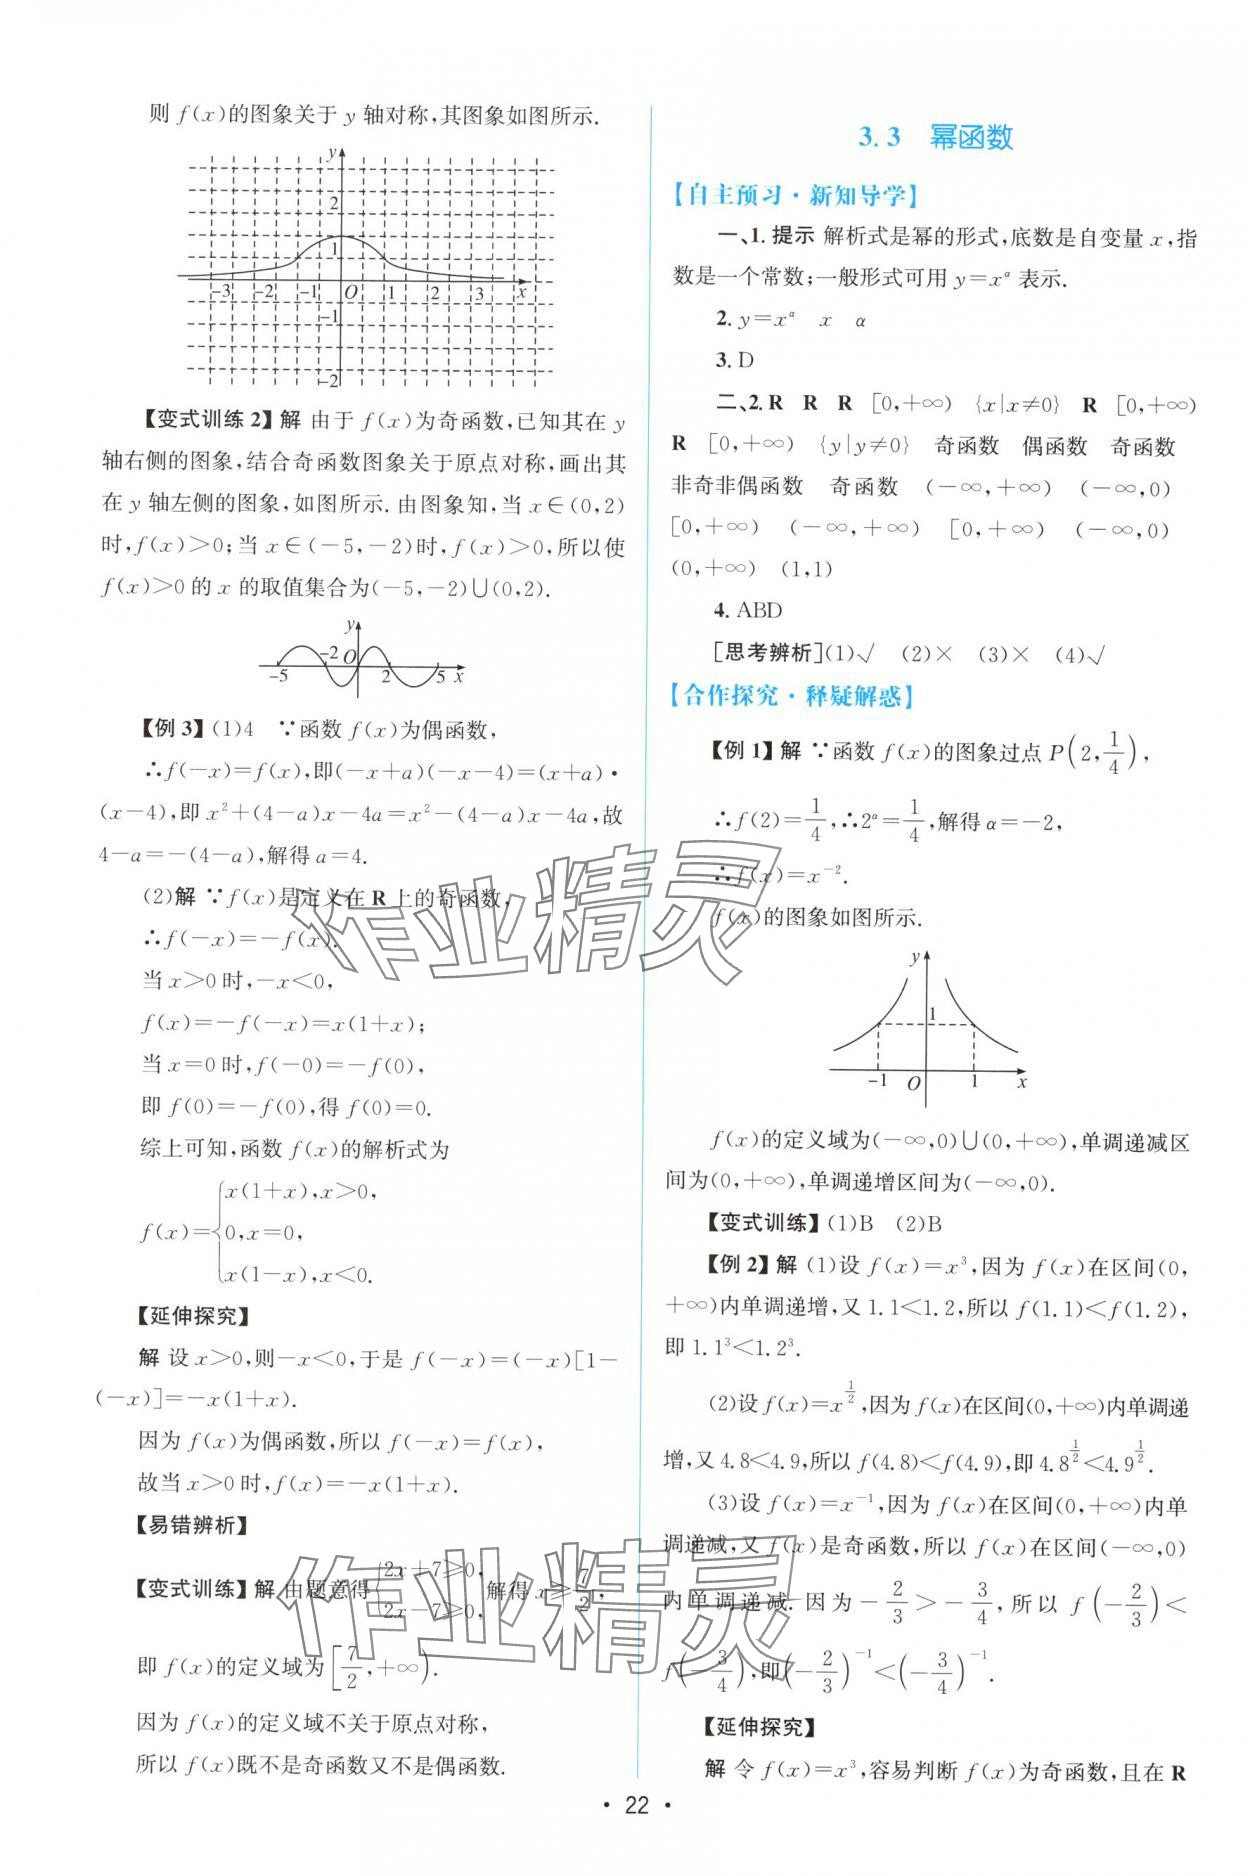 则 f(x)的图象关于 y 轴对称,其图象如图所示.
y
2
1
-3 -2 -1 O 1 2 3 x
-1
-2
【变式训练 2】解 由于 f(x)为奇函数,已知其在 y
轴右侧的图象,结合奇函数图象关于原点对称,画出其
在 y 轴左侧的图象,如图所示.由图象知,当 x∈(0,2)
时,f(x)>0;当 x∈(-5,-2)时,f(x)>0,所以使
f(x)>0 的 x 的取值集合为(-5,-2)∪(0,2).
y
-5 -2 O 2 5 x
【例 3】(1)4 ∵函数 f(x)为偶函数,
∴f(-x)=f(x),即(-x+a)(-x-4)=(x+a)·
(x-4),即 x²+(4-a)x-4a=x²-(4-a)x-4a,故
4-a=-(4-a),解得 a=4.
(2)解 ∵f(x)是定义在 R 上的奇函数,
∴f(-x)=-f(x).
当 x>0 时,-x<0,
f(x)=-f(-x)=x(1+x);
当 x=0 时,f(-0)=-f(0),
即 f(0)=-f(0),得 f(0)=0.
综上可知,函数 f(x)的解析式为
f(x)={x(1+x),x>0,
0,x=0,
x(1-x),x<0.
【延伸探究】
解 设 x>0,则-x<0,于是 f(-x)=(-x)[1-
(-x)]=-x(1+x).
因为 f(x)为偶函数,所以 f(-x)=f(x),
故当 x>0 时,f(x)=-x(1+x).
【易错辨析】
【变式训练】解 由题意得{2x+7≥0, 2x-7≥0, 解得 x≥7/2,
即 f(x)的定义域为[7/2,+∞).
因为 f(x)的定义域不关于原点对称,
所以 f(x)既不是奇函数又不是偶函数.
3.3 幂函数
【自主预习·新知导学】
一、1.提示 解析式是幂的形式,底数是自变量 x,指
数是一个常数;一般形式可用 y=x^α 表示.
2. y=x^α x α
3. D
二、2. R R R [0,+∞) {x|x≠0} R [0,+∞)
R [0,+∞) {y|y≠0} 奇函数 偶函数 奇函数
非奇非偶函数 奇函数 (-∞,+∞) (-∞,0)
[0,+∞) (-∞,+∞) [0,+∞) (-∞,0)
(0,+∞) (1,1)
4. ABD
[思考辨析](1)√ (2)× (3)× (4)√
【合作探究·释疑解惑】
【例 1】解 ∵函数 f(x)的图象过点 P(2,1/4),
∴f(2)=1/4,∴2^α=1/4,解得 α=-2,
∴f(x)=x⁻².
f(x)的图象如图所示.
y
1
-1 O 1 x
f(x)的定义域为(-∞,0)∪(0,+∞),单调递减区
间为(0,+∞),单调递增区间为(-∞,0).
【变式训练】(1)B (2)B
【例 2】解 (1)设 f(x)=x³,因为 f(x)在区间(0,
+∞)内单调递增,又 1.1<1.2,所以 f(1.1)<f(1.2),
即 1.1³<1.2³.
(2)设 f(x)=x^(1/2),因为 f(x)在区间(0,+∞)内单调递
增,又 4.8<4.9,所以 f(4.8)<f(4.9),即 4.8^(1/2)<4.9^(1/2).
(3)设 f(x)=x⁻¹,因为 f(x)在区间(0,+∞)内单
调递减,又 f(x)是奇函数,所以 f(x)在区间(-∞,0)
内单调递减.因为-2/3>-3/4,所以 f(-2/3)<
f(-3/4),即(-2/3)⁻¹<(-3/4)⁻¹.
【延伸探究】
解 令 f(x)=x³,容易判断 f(x)为奇函数,且在 R
·22·
作业精灵
作业精灵